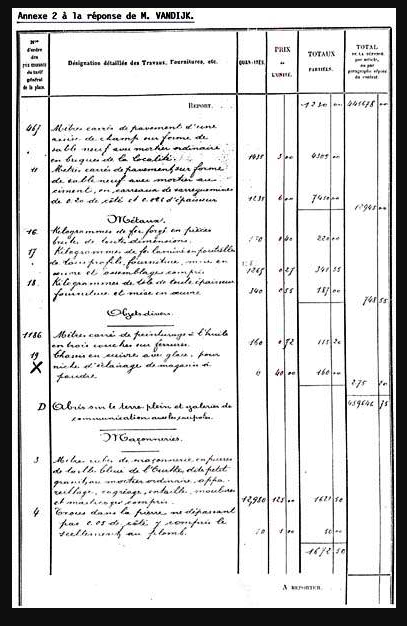 Annexe 2 à la réponse de M. VANDIJK.
Nos d'ordre des prix mesures du tarif général de la place.
Désignation détaillée des Travaux, Fournitures, etc.
QUANTITÉS.
PRIX de L'UNITÉ.
TOTAUX PARTIELS.
TOTAL DE LA DÉPENSE par article, ou par paragraphe séparé du contrat.
REPORT. 1230 00 441678 00
467 Mètres carrés de pavement d'une
assise de champ sur forme de
sable neuf avec mortier ordinaire
en briques de la localité. 1435 3 00 4305 00
11 Mètres carrés de pavement sur forme
de sable neuf avec mortier au
ciment, en carreaux de
de 0.20 de côté et d'épaisseur 1235 6 00 7410 00
12945 00
Métaux.
16 Kilogrammes de fer forgé en pièces
de toutes dimensions. 0 40 220 00
17 Kilogrammes de fer laminé en
de tous profils, fourniture, mise en
œuvre et assemblages compris 1265 0 27 341 55
18 Kilogrammes de tôle de toute épaisseur
fourniture et mise en œuvre 340 0 55 187 00
748 55
Objets divers.
1186 Mètres carrés de peinturage à l'huile
en trois couches sur ferrures. 160 0 72 115 20
19 Chassis en cuivre avec glace, pour
X niche d'éclairage de magasin à
poudre. 40 00 160 00
275 20
D Abris sur le terre plein et galeries de 459646 75
communication avec les coupoles.
Maçonneries.
3 Mètres cubes de maçonnerie en pierres
de taille bleue de l'Ourthe, dite petit
granit, au mortier ordinaire, appa-
reillage, ragréage, entaille, moulures
et masticages compris. 12,980 125 00 1622 50
4 Trous dans la pierre ne dépassant
pas 0.05 de côté, y compris le
scellement au plomb. 1 00 50 00
1672 50
A REPORTER.